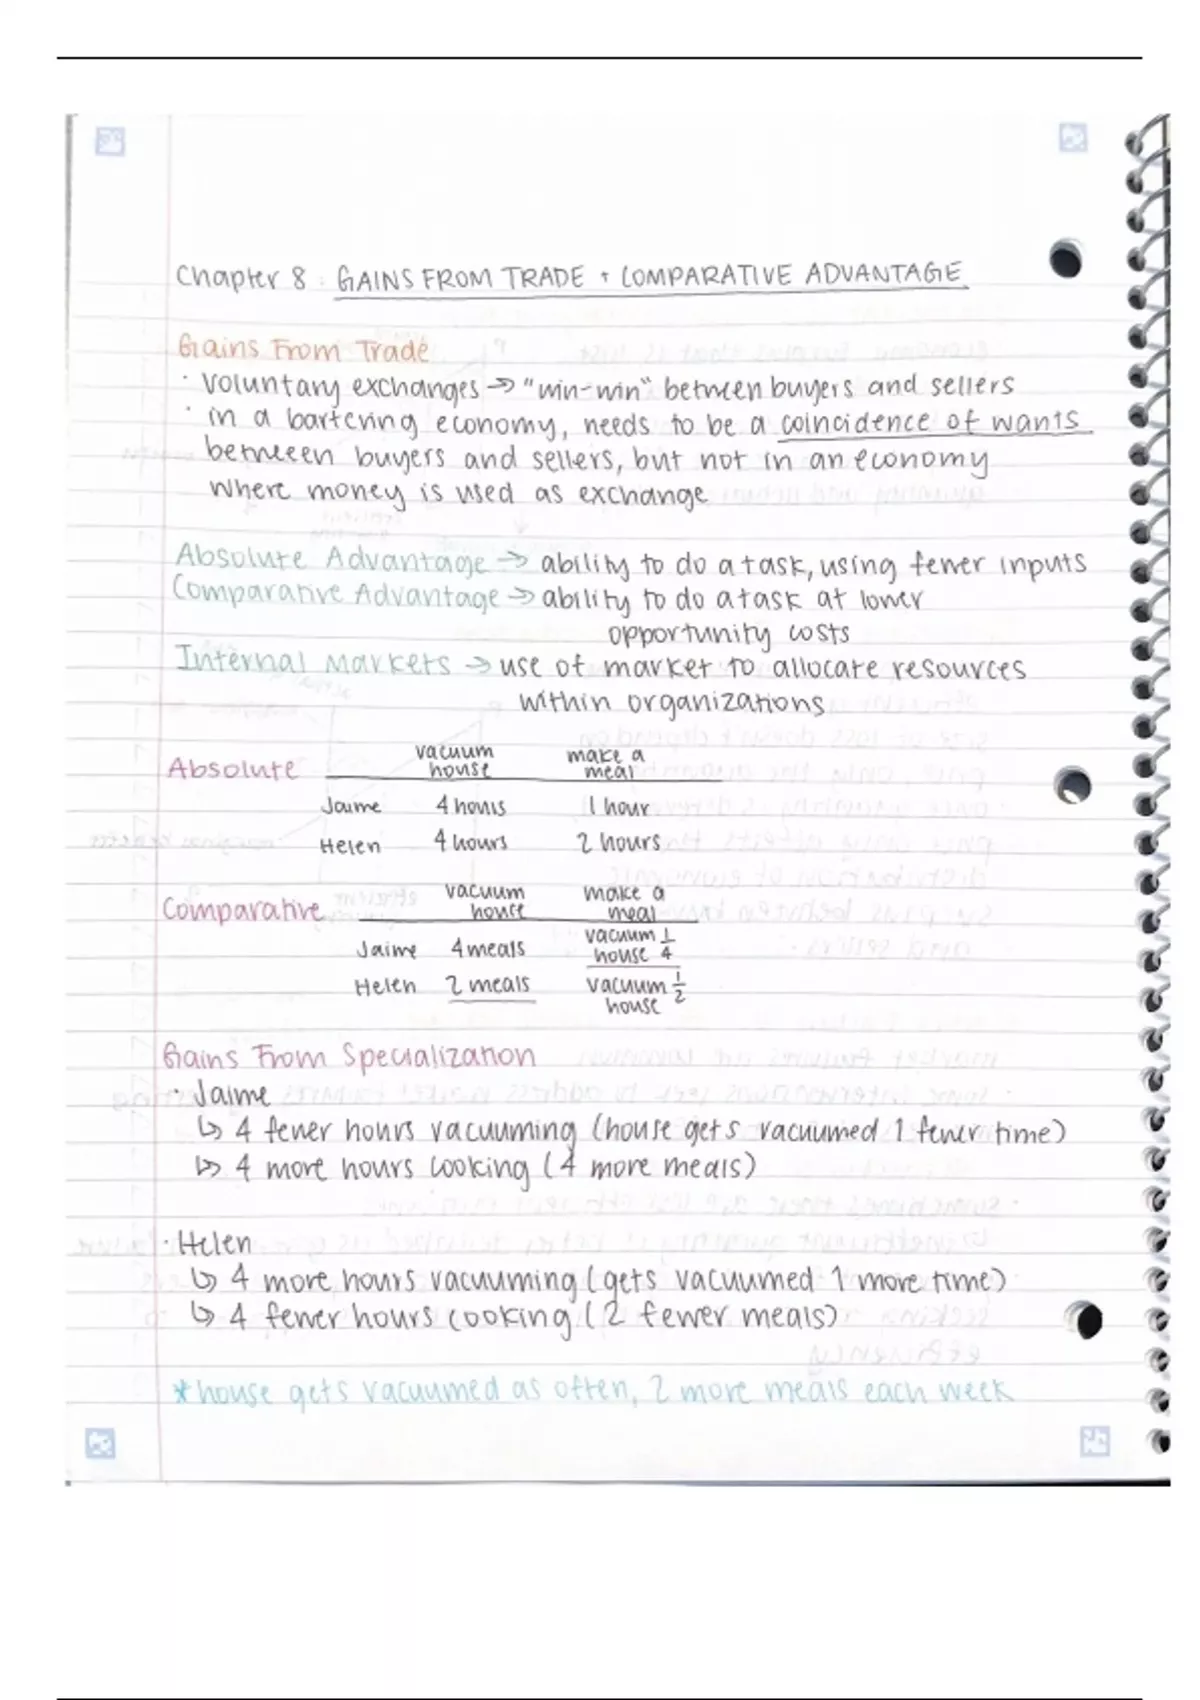 Chapter 8 : GAINS FROM TRADE + COMPARATIVE ADVANTAGE
Gains From Trade
· voluntary exchanges → "win-win" between buyers and sellers
· in a bartering economy, needs to be a coincidence of wants
between buyers and sellers, but not in an economy
where money is used as exchange
Absolute Advantage → ability to do a task, using fewer inputs
Comparative Advantage → ability to do a task at lower
opportunity costs
Internal Markets → use of market to allocate resources
within organizations
Absolute vacuum house make a meal
Jaime 4 hours 1 hour
Helen 4 hours 2 hours
Comparative vacuum house make a meal
Jaime 4 meals vacuum house 1/4
Helen 2 meals vacuum house 1/2
Gains From Specialization
· Jaime
↳ 4 fewer hours vacuuming (house gets vacuumed 1 fewer time)
↳ 4 more hours cooking (4 more meals)
· Helen
↳ 4 more hours vacuuming (gets vacuumed 1 more time)
↳ 4 fewer hours cooking (2 fewer meals)
* house gets vacuumed as often, 2 more meals each week